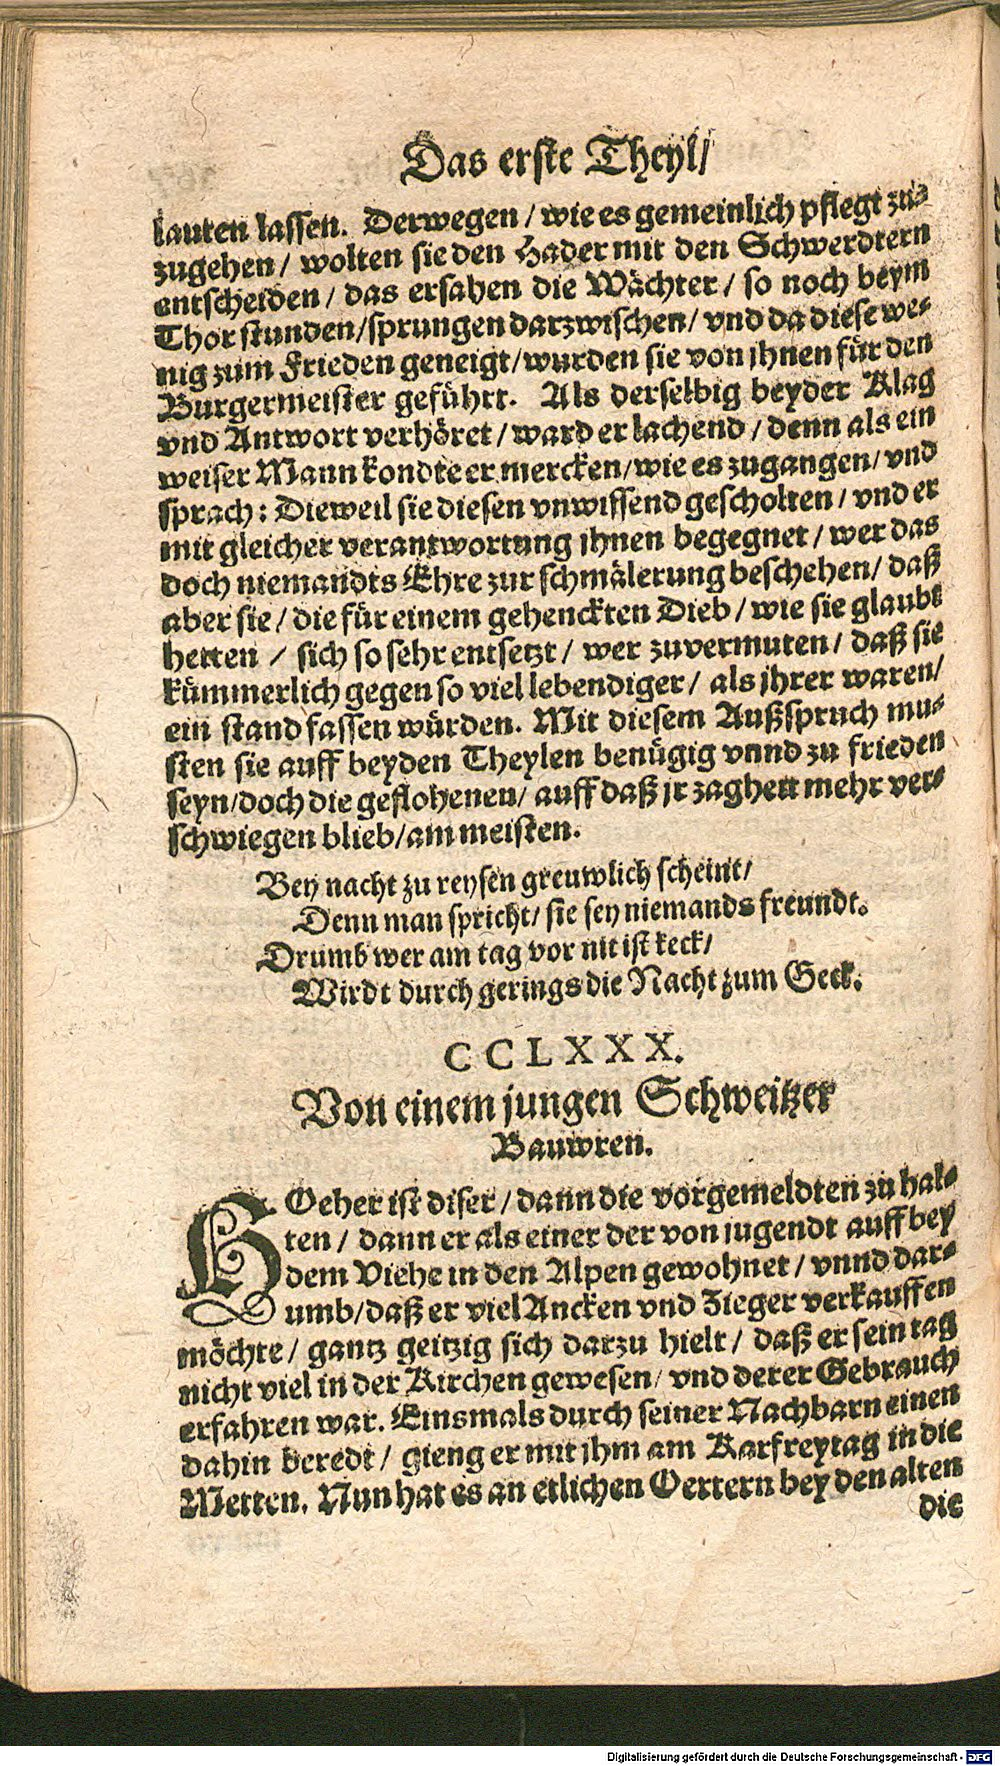 Das erste Theyl/
lauten lassen. Derwegen / wie es gemeinlich pflegt zu-
zugehen / wolten sie den Hader mit den Schwerdtern
entscheiden / das ersahen die Wächter / so noch beym
Thor stunden / sprungen darzwischen / vnd da diese we-
nig zum Frieden geneigt / wurden sie von jhnen für den
Burgermeister geführt. Als derselbig beyder Klag
vnd Antwort verhöret / ward er lachend / denn als ein
weiser Mann kondte er mercken / wie es zugangen / vnd
sprach: Dieweil sie diesen vnwissend gescholten / vnd er
mit gleicher verantwortung jhnen begegnet / wer das
doch niemandts Ehre zur schmälerung beschehen / daß
aber sie / die für einem gehenckten Dieb / wie sie glaubt
hetten / sich so sehr entsetzt / wer zuvermuten / daß sie
kümmerlich gegen so viel lebendiger / als jhrer waren /
ein stand fassen würden. Mit diesem Außspruch mu-
sten sie auff beyden Theylen benügig vnnd zu frieden
seyn / doch die geflohenen / auff daß jr zagheit mehr ver-
schwiegen blieb / am meisten.
Bey nacht zu reysen greuwlich scheint /
Denn man spricht / sie sey niemands freundt.
Drumb wer am tag vor nit ist keck /
Wirdt durch gerings die Nacht zum Geck.
CCLXXX.
Von einem jungen Schweitzer
Bauwren.
HOeher ist diser / dann die vorgemeldten zu hal-
ten / dann er als einer der von jugendt auff bey
dem Viehe in den Alpen gewohnet / vnnd dar-
umb / daß er viel Ancken vnd Zieger verkauffen
möchte / gantz geitzig sich darzu hielt / daß er sein tag
nicht viel in der Kirchen gewesen / vnd derer Gebrauch
erfahren war. Einsmals durch seiner Nachbarn einen
dahin beredt / gieng er mit jhm am Karfreytag in die
Metten. Nun hat es an etlichen Oertern bey den alten
die
Digitalisierung gefördert durch die Deutsche Forschungsgemeinschaft - DFG